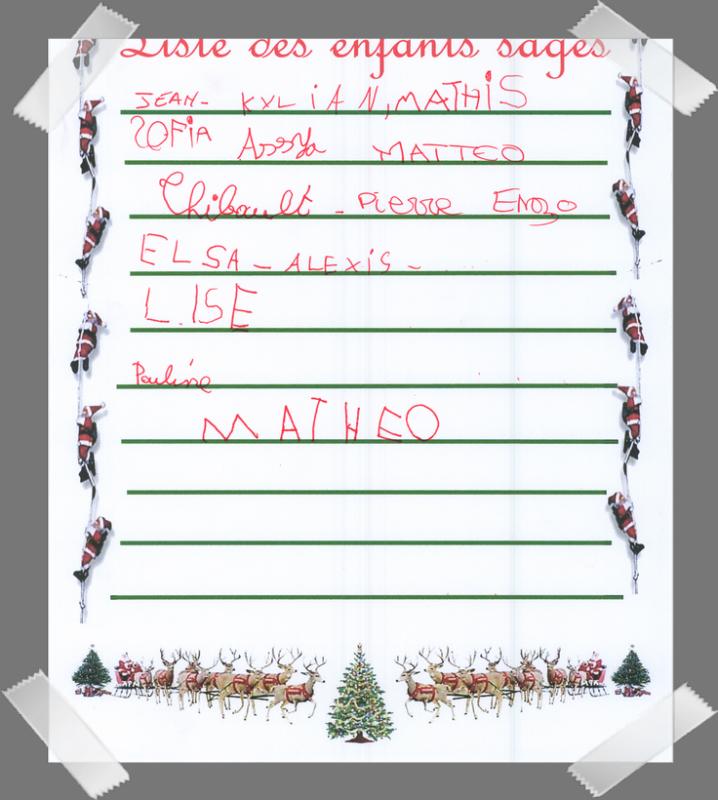 Liste des enfants sages
JEAN- KYLiAN, MATHiS
ZOFiA Assya MATTEO
Thibault - Pierre Enzo
ELSA - ALEXiS -
LISE
Pauline
MATHEO